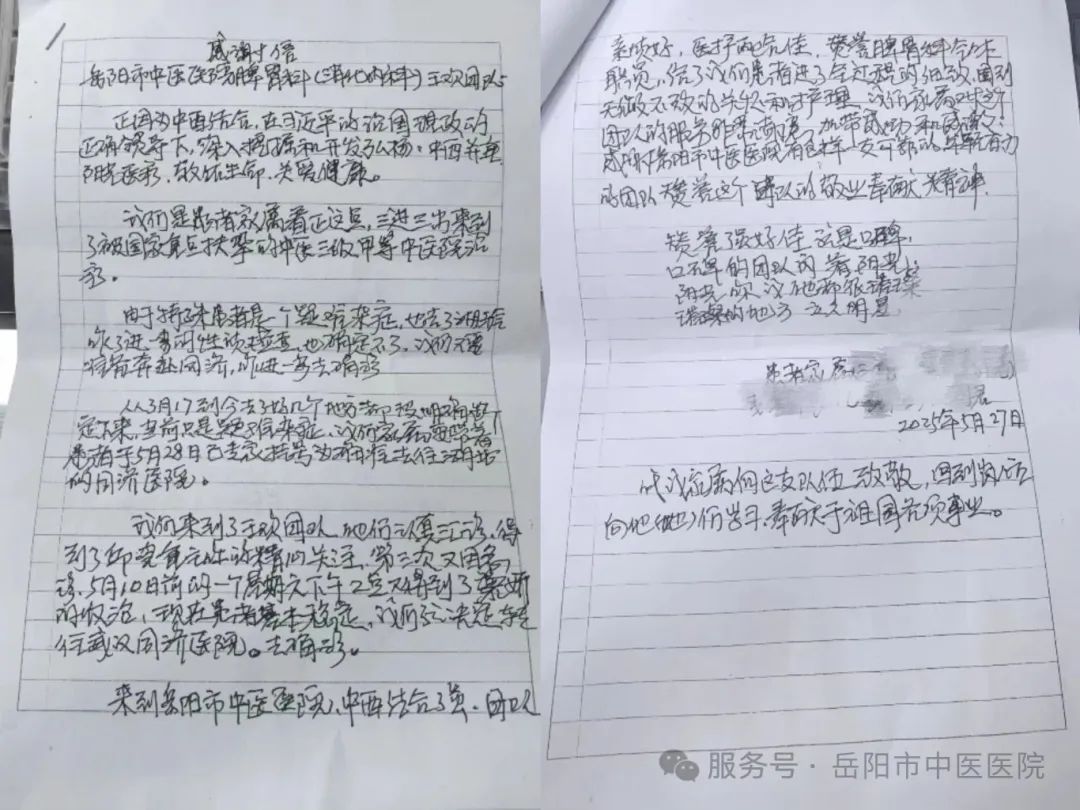 感谢信
岳阳市中医医院脾胃科(消化内科)王欢团队
正因为中西结合,在习近平的治国理政的
正确领导下,深入挖掘和开发弘扬中西并重
阳光医疗,敬佑生命,关爱健康。
我们是患者家属看正这点,三进三出来到
了被国家重点扶擎的中医三级甲等中医院治
疗。
由于特殊患者是一个疑难杂症,也去了湘雅
做了进一步的性质检查,也确定不了,我们还要
准备奔赴同济,作进一步去确诊
从3月17到今去了好几个地方都没明确断
定下来,当前只是疑难杂症,我们家属要带着
患者于5月28日去家挂号边确准去往湖北
的同济医院。
我们来到了王欢团队,他们认真会诊,得
到了 主任的精心关注,第三次又因多
诊,5月10日前的一个星期六下午2点又得到了
的收治,现在患者基本稳定,我们决定转
往武汉同济医院。去确诊。
来到岳阳市中医医院,中西结合了强,团队
素质好,医护配合佳,赞誉脾胃科全体
职员,给了我们患者进了全过程的细致,周到
无微不致的关怀和护理,我们家属对这个
团队的服务非常满意,加带感动和感激!
感谢岳阳市中医医院有这样一支可靠的卓取有力
的团队赞誉这个团队的敬业奉献精神
赞誉强好佳 这是口碑,
口碑的团队闪着阳光;
阳光照 汉他都很璀璨
璀璨的地方 立久明星
患者家属
2025年5月27日
代我症属向这支队伍致敬,回到岗位
向他(她)们学习,奉献于祖国各项事业。
服务号·岳阳市中医医院